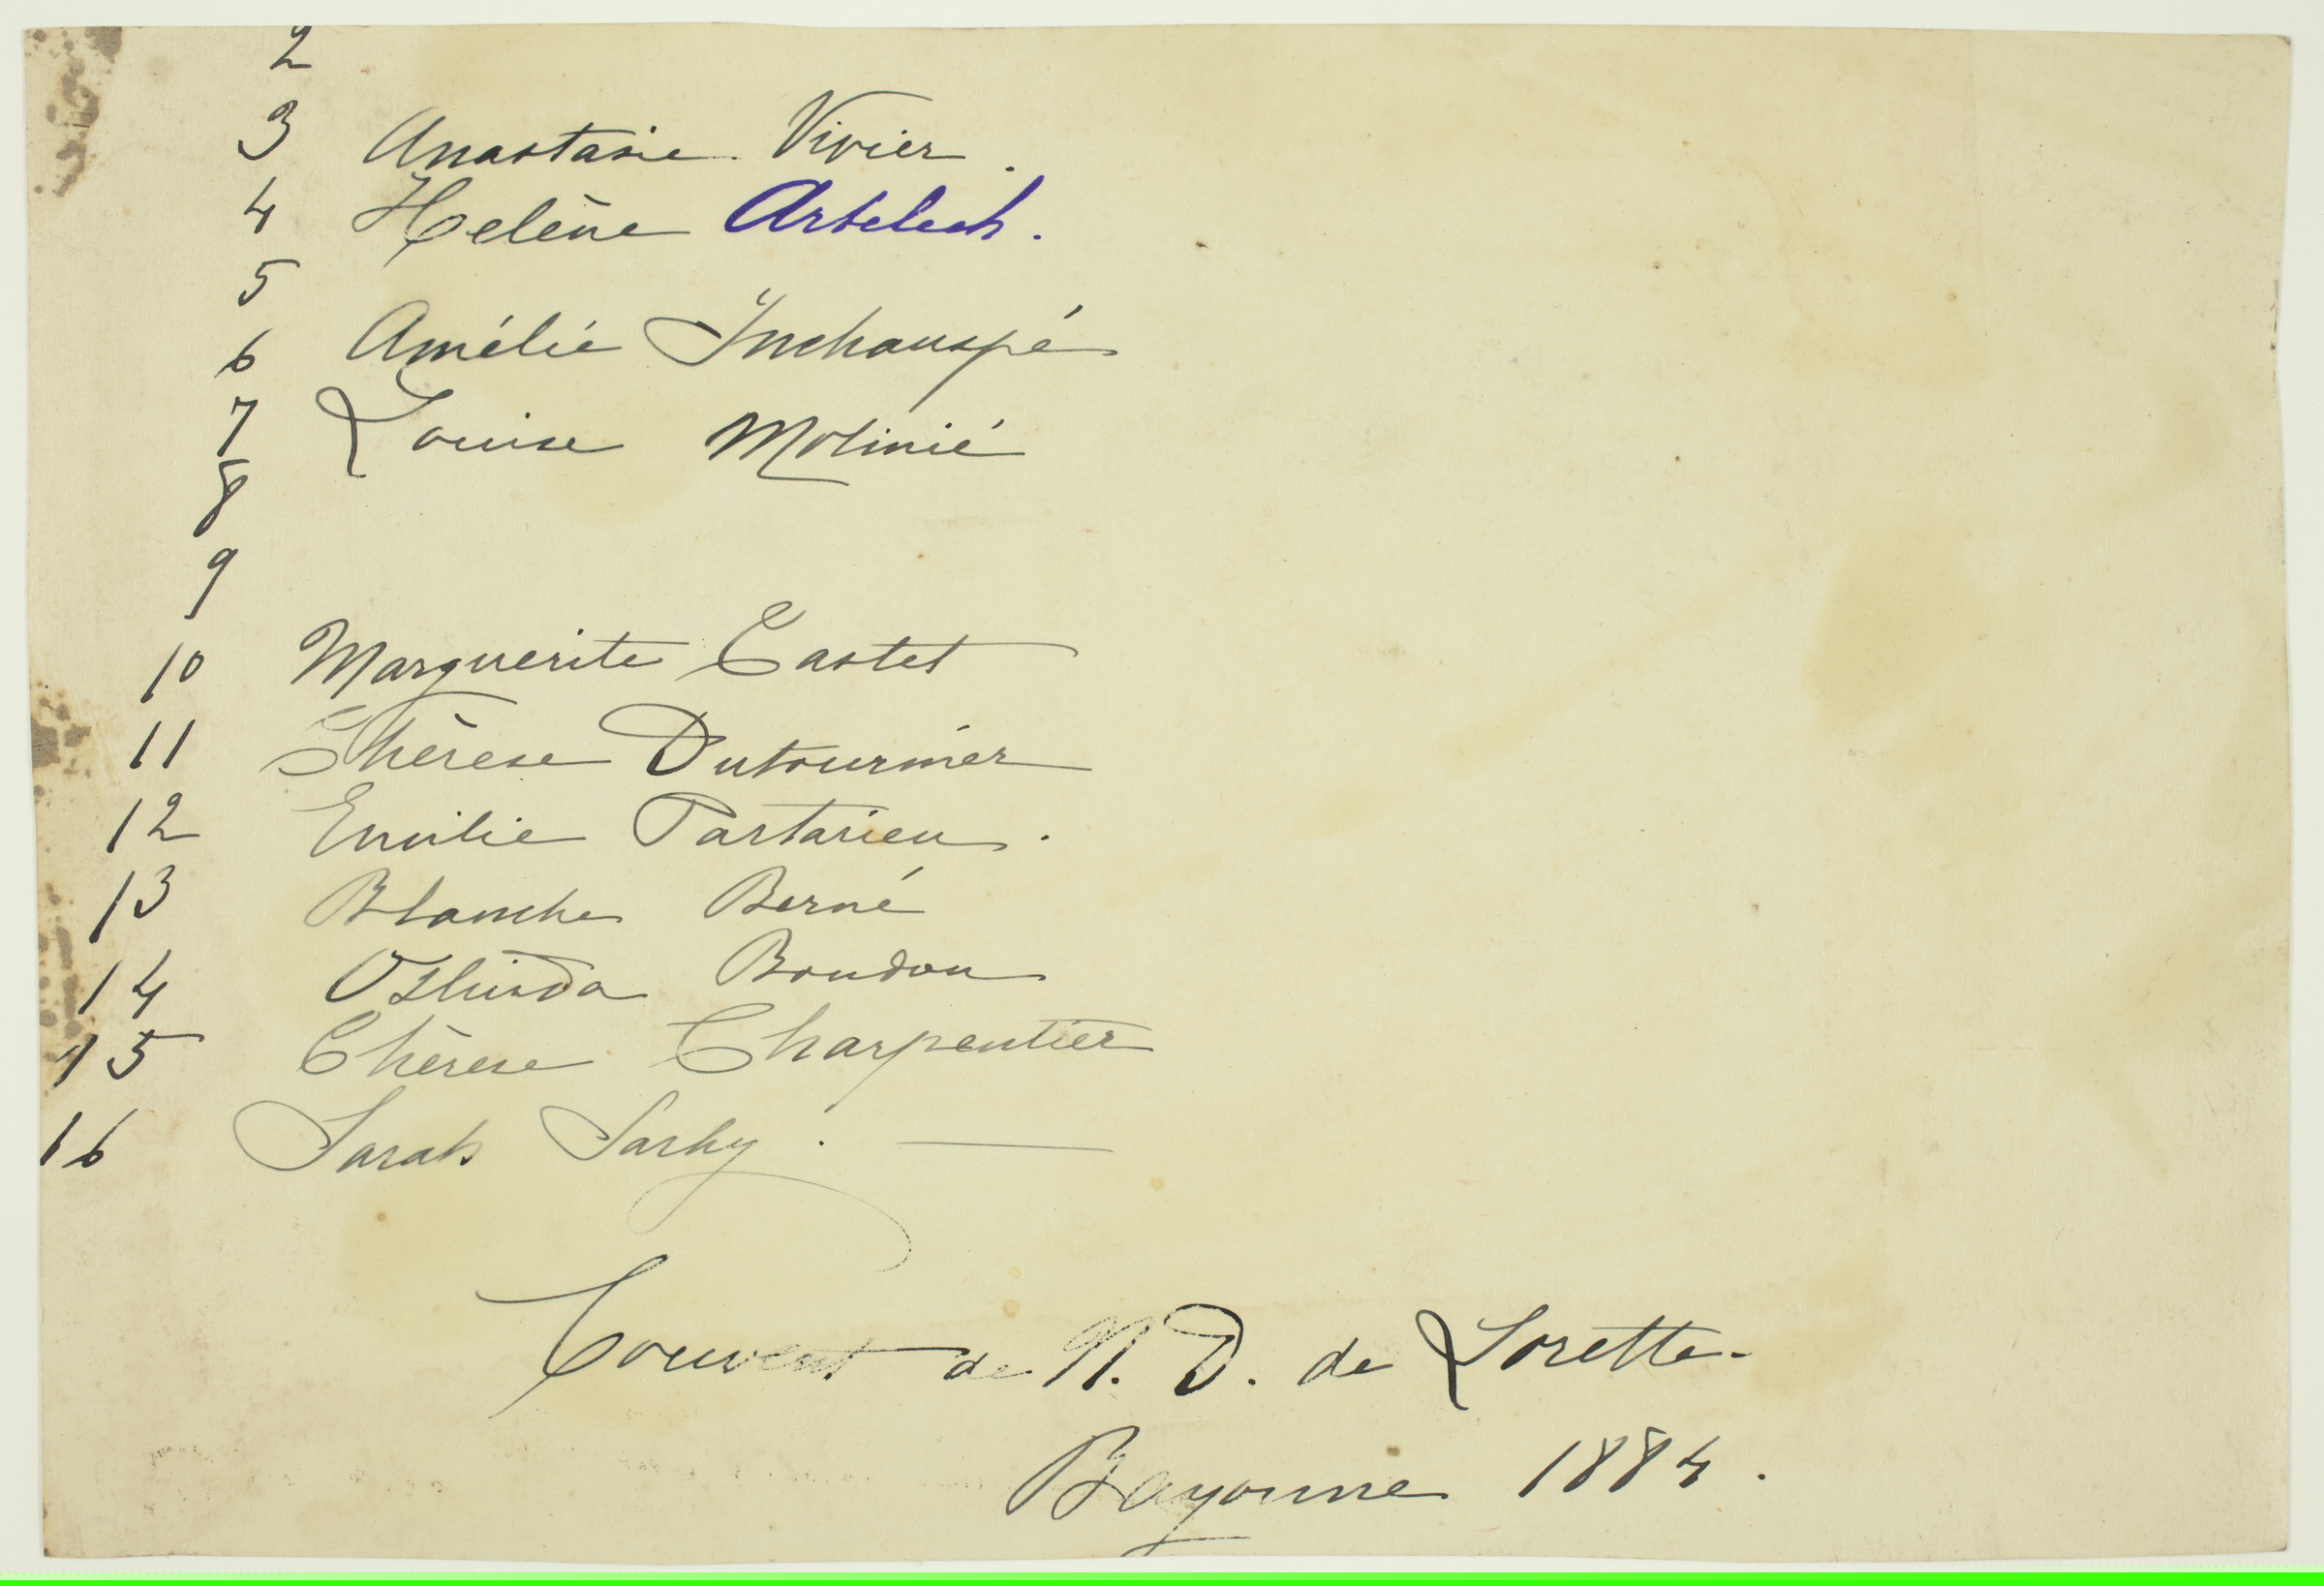 2
3 Anastasie Vivier.
4 Helène Artelech.
5
6 Amélie Inchauspé
7 Louise Molinié
8
9
10 Marguerite Castet
11 Thérèse Dutournier
12 Emilie Partarieu.
13 Blanche Berné
14 Boudou
15 Thérèse Charpentier
16 Sarah Sarhy.
Couvent de N. D. de Lorette.
Bayonne 1884.